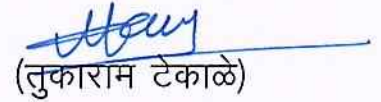 (तुकाराम टेकाळे)